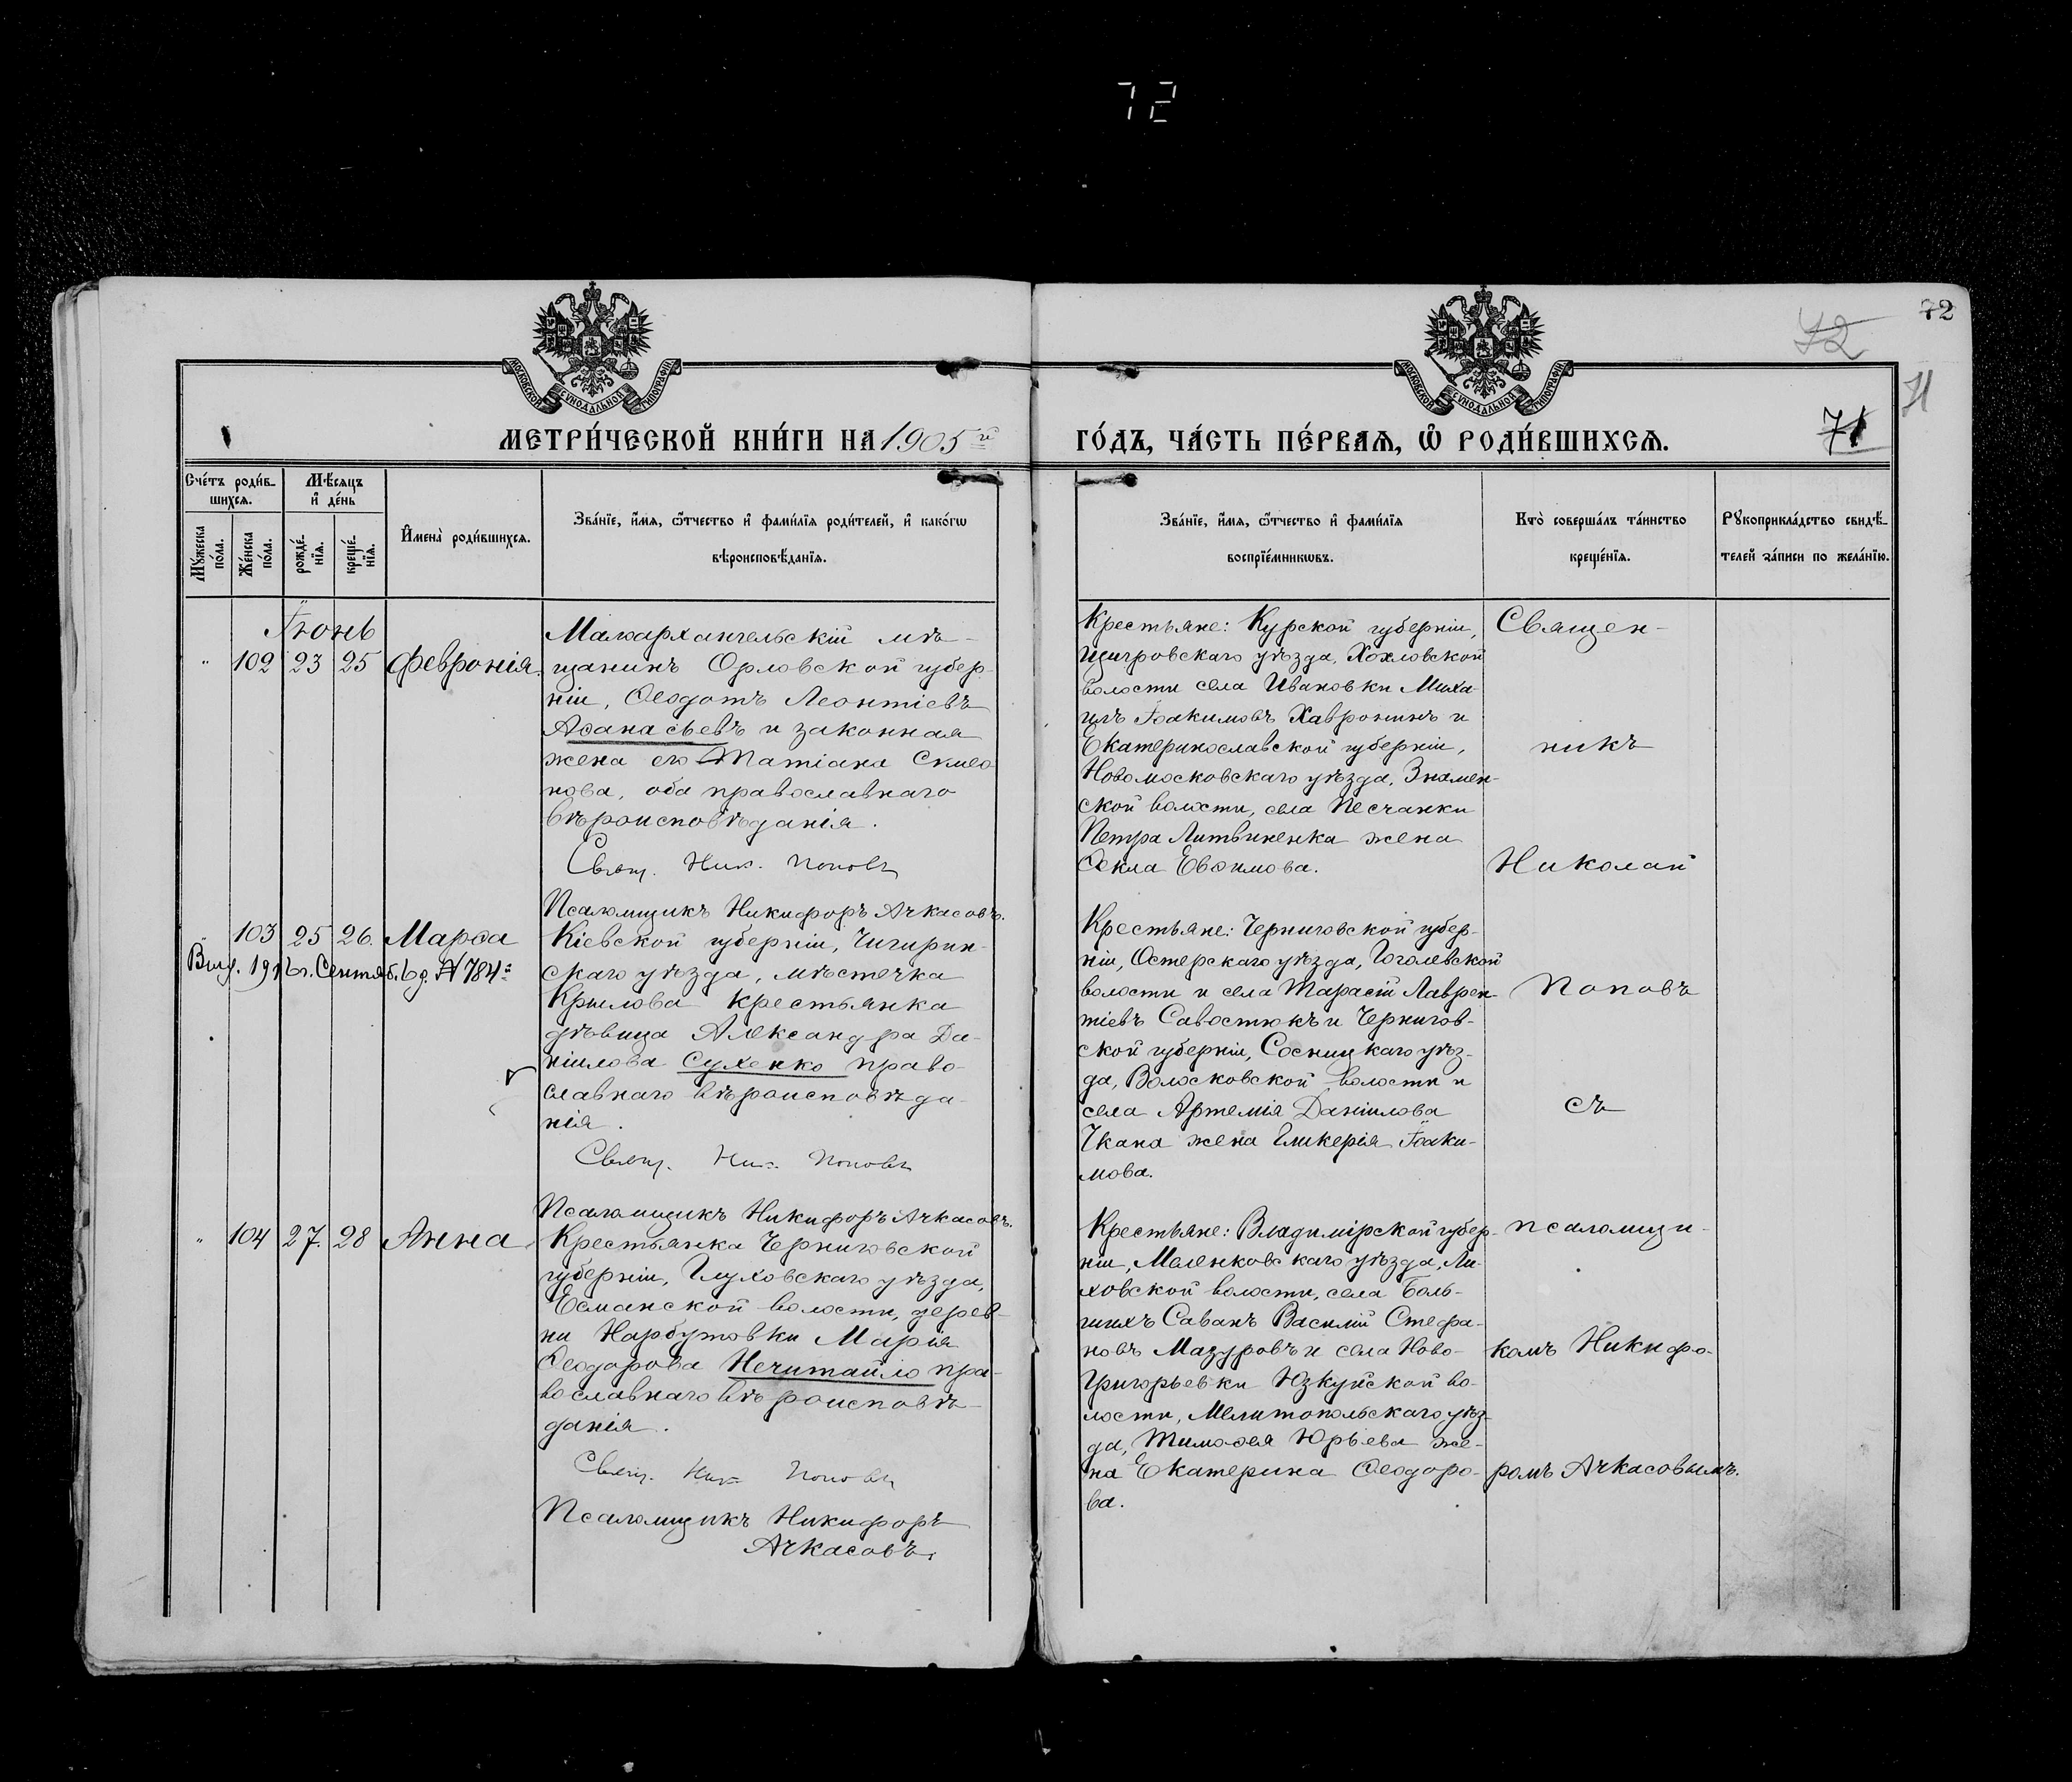 72
72
72
71
71
МОСКОВСКОЙ СУНОДАЛЬНОЙ ТИПОГРАФІИ
МОСКОВСКОЙ СУНОДАЛЬНОЙ ТИПОГРАФІИ
МЕТРИ́ЧЕСКОЙ КНИ́ГИ НА 1905й ГО́ДЪ, ЧА́СТЬ ПЕ́РВАѦ, Ѽ РОДИ́ВШИХСѦ.
Сче́тъ роди́в-
шихсѧ.
Мѣ́сѧцъ
и҆ де́нь
Мꙋ́жеска
по́ла.
Же́нска
по́ла.
рожде́-
нїѧ.
креще́-
нїѧ.
И҆мена̀ роди́вшихсѧ.
Зва́нїе, и҆́мѧ, ѻ҆́тчество и҆ фами́лїѧ роди́телей, и҆ како́гѡ
вѣроисповѣ́данїѧ.
Зва́нїе, и҆́мѧ, ѻ҆́тчество и҆ фами́лїѧ
воспрїе́мникѡвъ.
Кто̀ соверша́лъ та́инство
креще́нїѧ.
Рꙋкоприкла́дство свидѣ́-
телей за́писи по жела́нїю.
Іюнь
" 102 23 25 Февронія.
Малоархангельскій мѣ-
щанинъ Орловской губер-
ніи, Ѳеодотъ Леонтіевъ
Аѳанасьевъ и законная
жена его Татіана Симео
нова, оба православнаго
вѣроисповѣданія.
Свящ. Ник. Поповъ
Псаломщикъ Никифоръ Ачкасовъ.
Крестьяне: Курской губерніи,
Щигровскаго уѣзда, Хохловской
волости села Ивановки Миха-
илъ Іоакимовъ Хавронинъ и
Екатеринославской губерніи,
Новомосковскаго уѣзда, Знамен-
ской волости, села Песчанки
Петра Литвиненка жена
Ѳекла Евѳимова.
Священ-
никъ
Николай
" 103 25 26. Марѳа
Выд. 1916г. Сентяб. 6 д. № 784:
Кіевской губерніи, Чигирин-
скаго уѣзда, мѣстечка
Крылова крестьянка
дѣвица Александра Да-
ніилова Сухенко право-
славнаго вѣроисповѣда-
нія.
Свящ. Ник. Поповъ
Псаломщикъ Никифоръ Ачкасовъ.
Крестьяне: Черниговской губер-
ніи, Остерскаго уѣзда, Гоголевской
волости и села Тарасій Лаврен-
тіевъ Савостюкъ и Чернигов-
ской губерніи, Сосницкаго уѣз-
да, Волосковской волости и
села Артемія Даніилова
Чкана жена Гликерія Іоаки-
мова.
Поповъ
съ
" 104 27. 28 Анна
Крестьянка Черниговской
губерніи, Глуховскаго уѣзда,
Есманской волости, дерев-
ни Нарбутовки Марія
Ѳеодорова Нечитайло пра-
вославнаго вѣроисповѣ-
данія.
Свящ. Ник. Поповъ
Псаломщикъ Никифоръ
Ачкасовъ.
Крестьяне: Владимірской губер-
ніи, Меленковскаго уѣзда, Ля-
ховской волости, села Боль-
шихъ Саванъ Василій Стефа-
новъ Мазуровъ и села Ново-
Григорьевки Юзкуйской во-
лости, Мелитопольскаго уѣз-
да, Тимоѳея Юрьева же-
на Екатерина Ѳеодоро-
ва.
псаломщи-
комъ Никифо-
ромъ Ачкасовымъ.